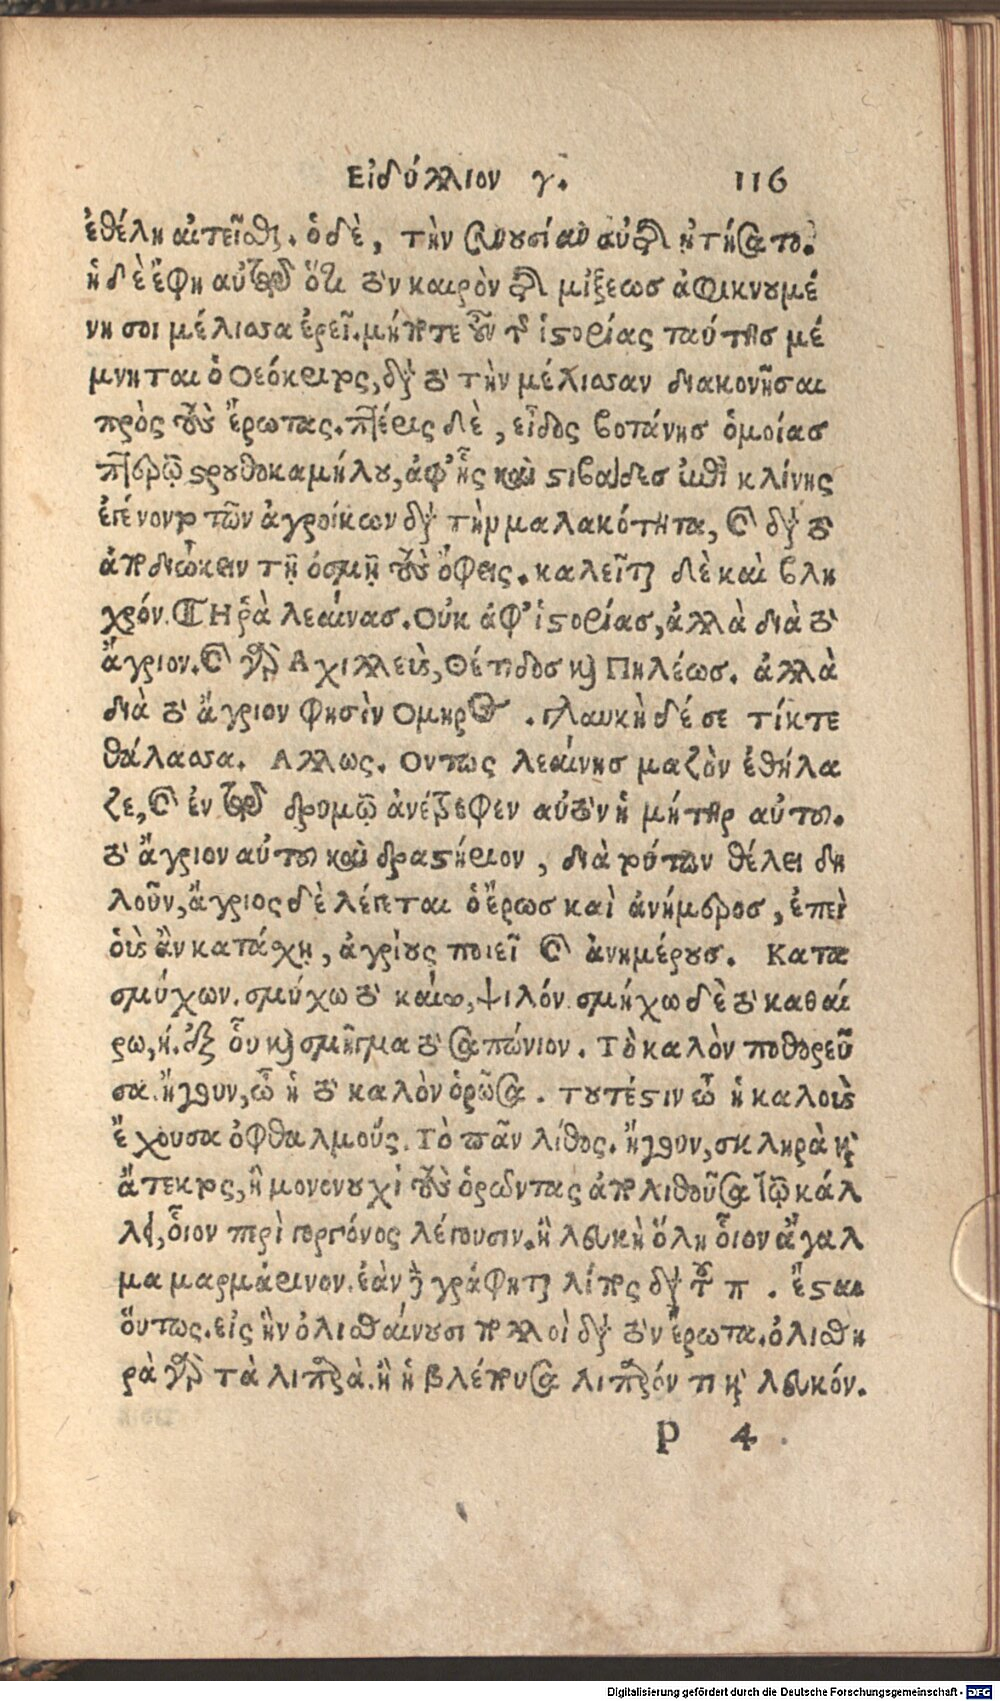 Εἰδύλλιον γ. 116
ἐθέλῃ αἰτεῖσθαι. ὁ δὲ, τὴν συνουσίαν αὐτῆς ᾐτήσατο.
ἡ δὲ ἔφη αὐτῷ ὅτι τὸν καιρὸν τῆς μίξεως ἀφικνουμέ
νη σοι μέλισσα ἐρεῖ. μήποτε οὖν τῆς ἱστορίας ταύτης μέ
μνηται ὁ Θεόκριτος, διὰ τὸ τὴν μέλισσαν διακονῆσαι
πρὸς τοὺς ἔρωτας. πτέρις δὲ, εἶδος βοτάνης ὁμοίας
πτερῷ στρουθοκαμήλου, ἀφ' ἧς καὶ στιβάδες ἐπὶ κλίνης
ἐγένοντο τῶν ἀγροίκων διὰ τὴν μαλακότητα, καὶ διὰ τὸ
ἀποδιώκειν τῇ ὀσμῇ τοὺς ὄφεις. καλεῖται δὲ καὶ βλη
χρόν. Ἦ ῥὰ λεαίνας. Οὐκ ἀφ' ἱστορίας, ἀλλὰ διὰ τὸ
ἄγριον. καὶ γὰρ Ἀχιλλεὺς, Θέτιδος καὶ Πηλέως. ἀλλὰ
διὰ τὸ ἄγριον φησὶν Ομηρος. γλαυκὴ δέ σε τίκτε
θάλασσα. Αλλως. Οντως λεαίνης μαζὸν ἐθήλα
ζε, καὶ ἐν τῷ δρυμῷ ἀνέτρεφεν αὐτὸν ἡ μήτηρ αὐτοῦ.
τὸ ἄγριον αὐτοῦ καὶ δραστήριον, διὰ τούτων θέλει δη
λοῦν, ἄγριος δὲ λέγεται ὁ ἔρως καὶ ἀνήμερος, ἐπεὶ
οὓς ἂν κατάσχῃ, ἀγρίους ποιεῖ καὶ ἀνημέρους. Κατα
σμύχων. σμύχω τὸ καίω, ψιλόν. σμήχω δὲ τὸ καθαί
ρω, ή. ἐξ οὗ καὶ σμῆγμα τὸ σαπώνιον. Τὸ καλὸν ποθορεῦ
σα. ἤγουν, ὦ ἡ τὸ καλὸν ὁρῶσα. τουτέστιν ὦ ἡ καλοὺς
ἔχουσα ὀφθαλμούς. Τὸ πᾶν λίθος. ἤγουν, σκληρὰ καὶ
ἄτεγκτος, ἢ μονονουχὶ τοὺς ὁρῶντας ἀπολιθοῦσα τῷ κάλ
λει, οἷον περὶ γοργόνος λέγουσιν. ἢ λευκὴ ὅλη οἷον ἄγαλ
μα μαρμάρινον. ἐὰν δὲ γράφηται λίπος διὰ τοῦ π. ἔσται
οὕτως. εἰς ἣν ὀλισθαίνουσι πολλοὶ διὰ τὸν ἔρωτα. ὀλισθη
ρὰ γὰρ τὰ λιπαρά. ἢ ἡ βλέπουσα λιπαρόν τι καὶ λευκόν.
P 4